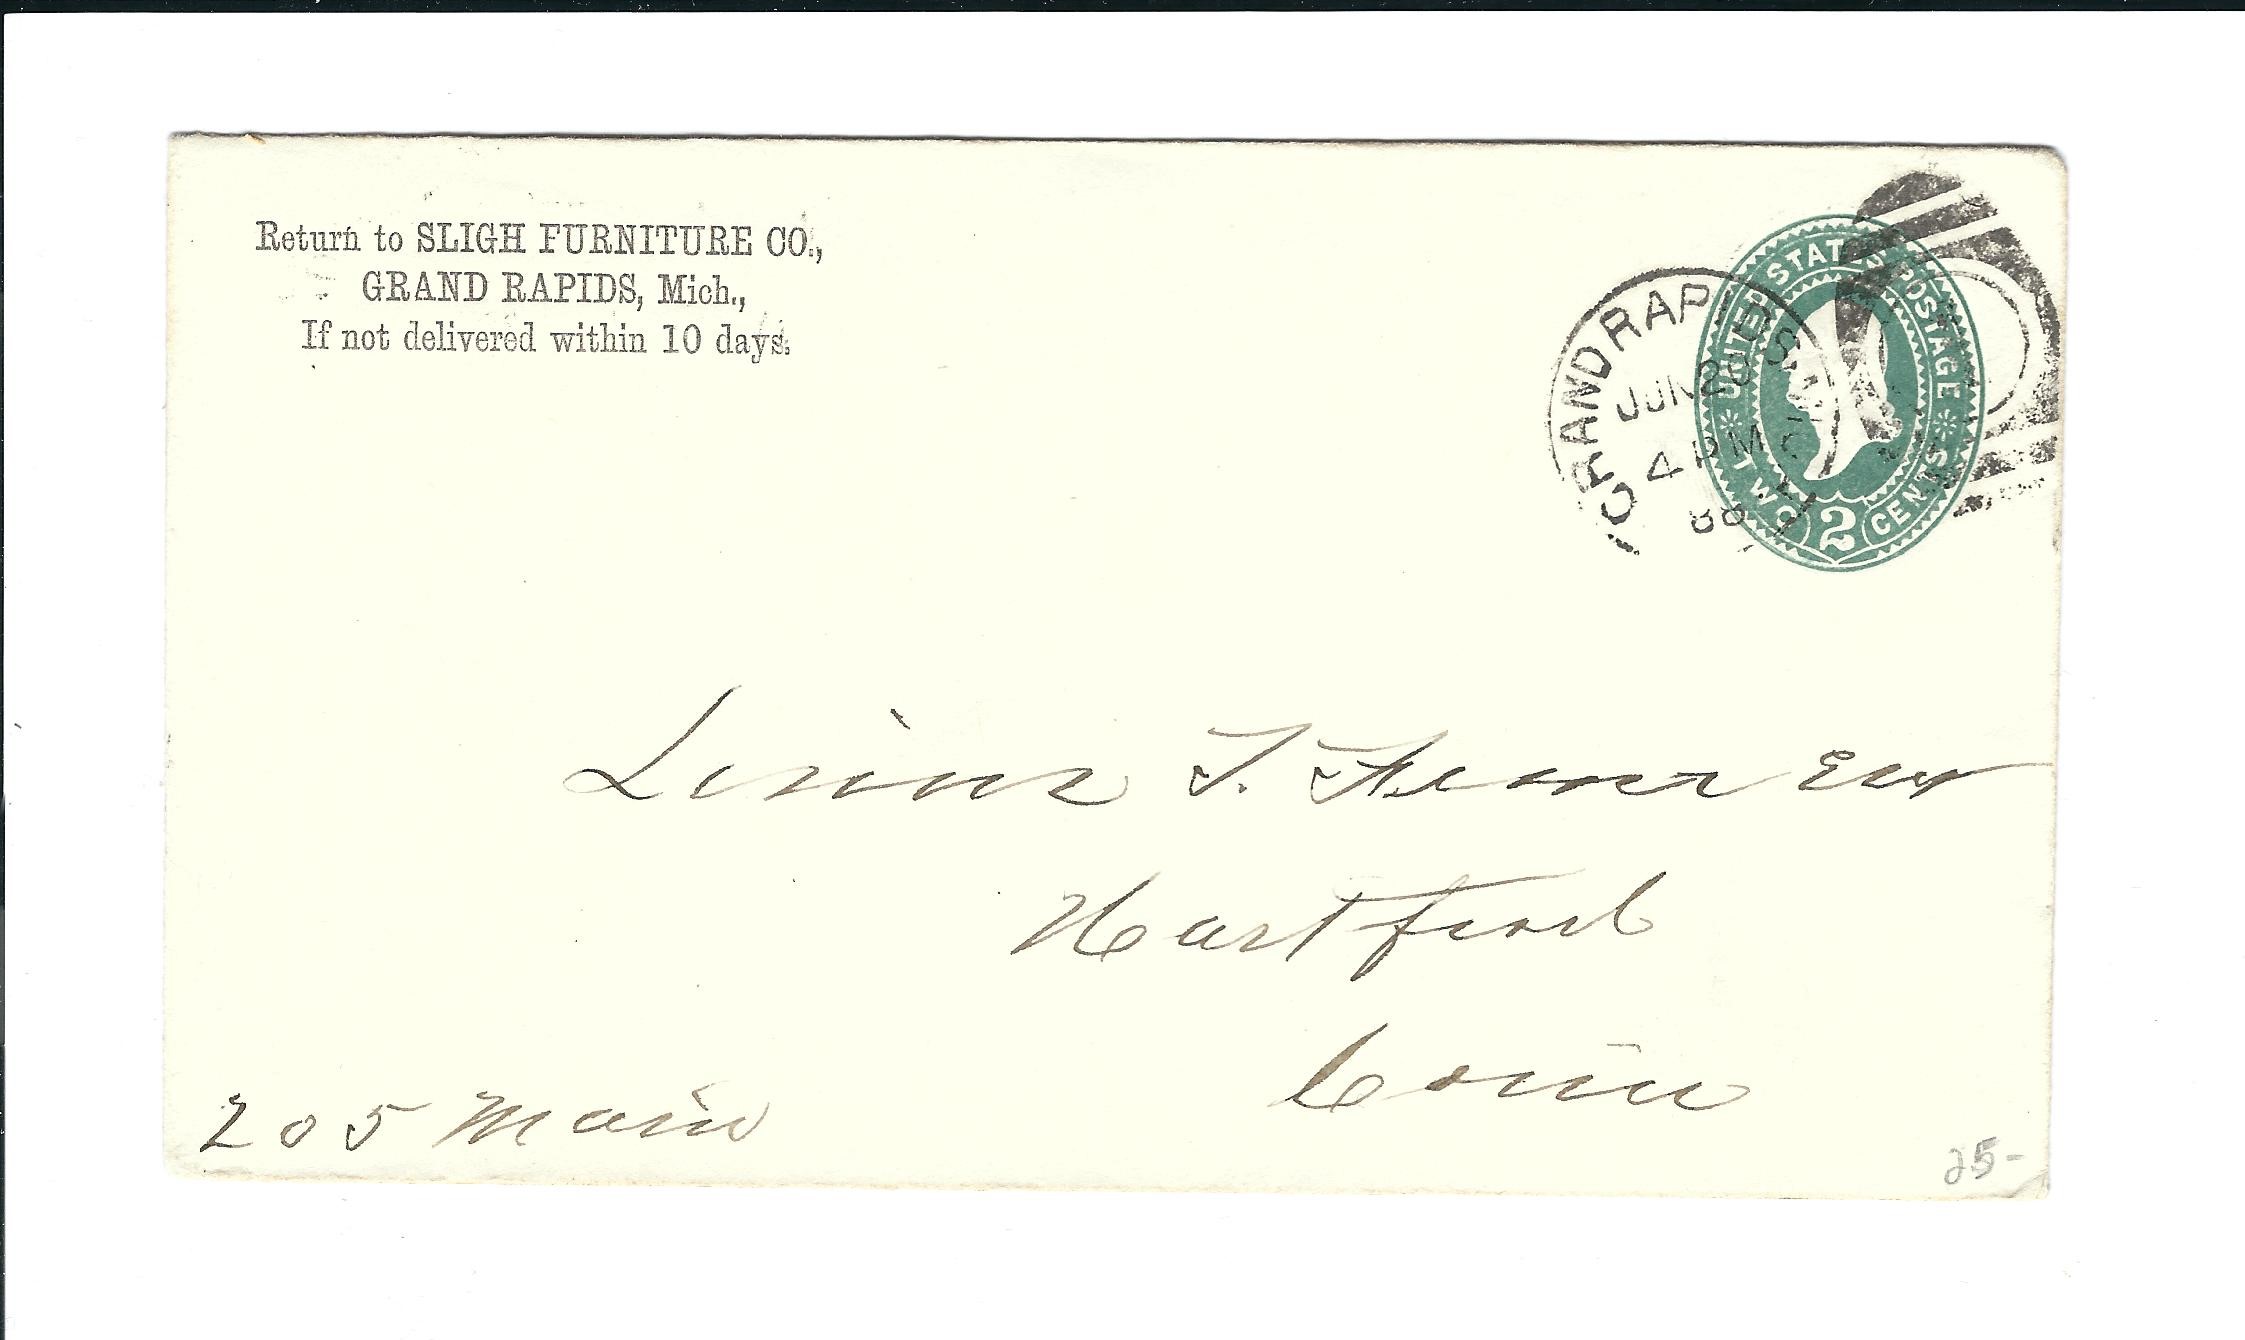 Return to SLIGH FURNITURE CO.,
GRAND RAPIDS, Mich.,
If not delivered within 10 days.
UNITED STATES POSTAGE
TWO 2 CENTS
GRAND RAPIDS, MICH
JUN 20
4 PM
88
Linus T. Fenn Esq
Hartford
Conn
205 Main
25-